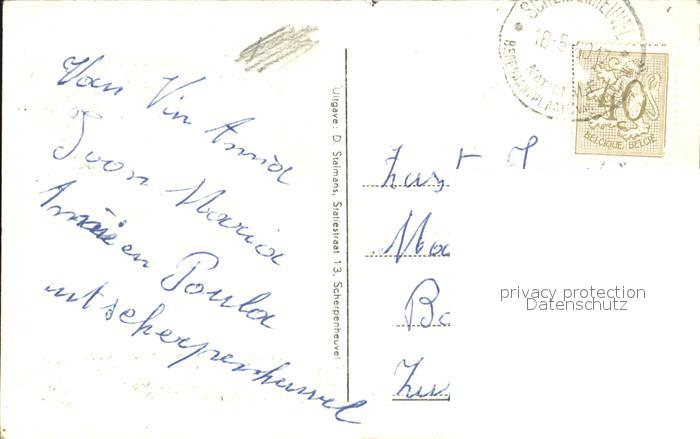 Van Vin Annia
Ivon Maria
en Paula
uit scherpenheuvel
Uitgave: D. Stalmans, Statiestraat 13, Scherpenheuvel
SCHERPENHEUVEL
18-5-60
BEDEVAARTPLAATS
40
BELGIQUE-BELGIË
Zust
Ma
Bo
Zus
privacy protection
Datenschutz